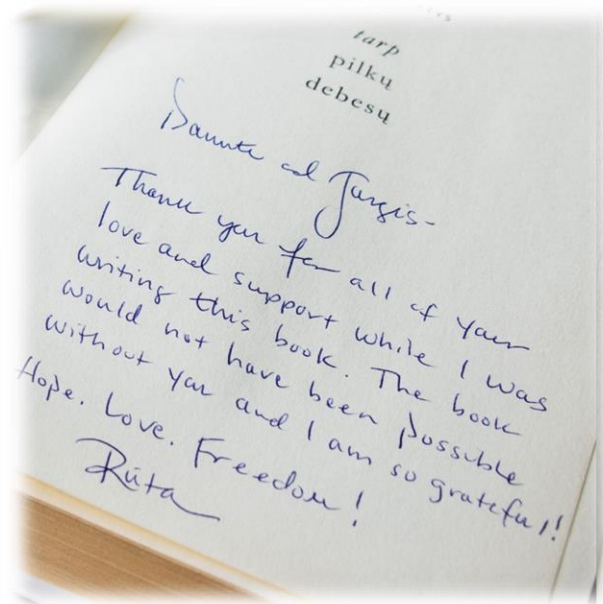 tarp
pilkų
debesų
Danutė and Jurgis-
Thank you for all of your
love and support while I was
writing this book. The book
would not have been possible
without you and I am so grateful!
Hope. Love. Freedom!
Rūta